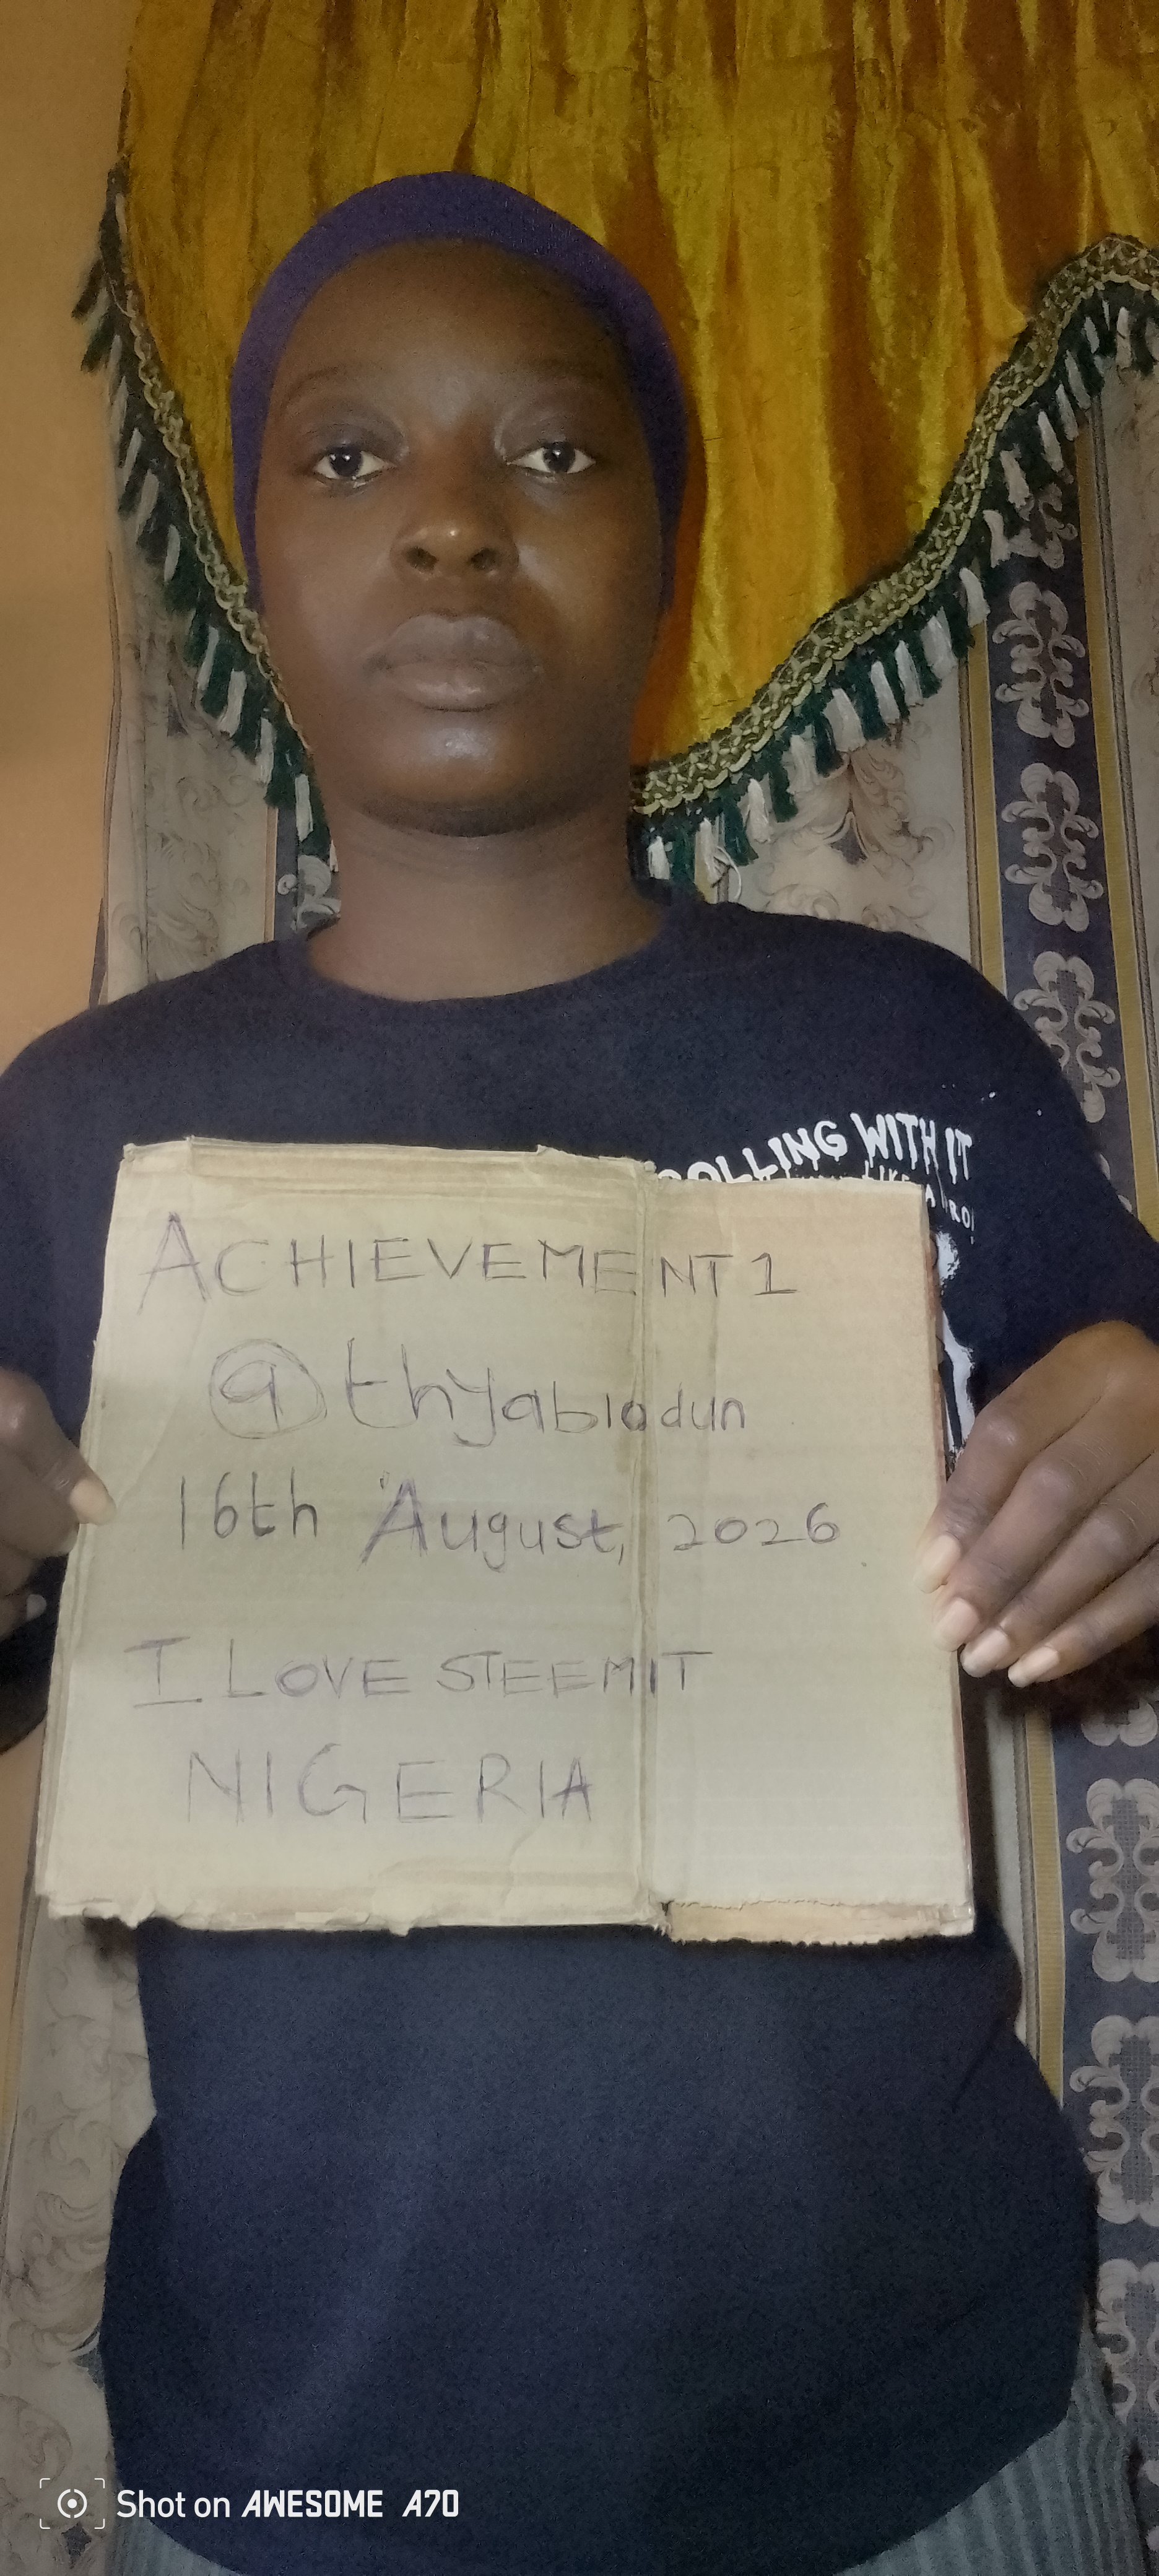 ROLLING WITH IT
LIKE A PRO
ACHIEVEMENT 1
@thyabiodun
16th August, 2026
I LOVE STEEMIT
NIGERIA
Shot on AWESOME A70